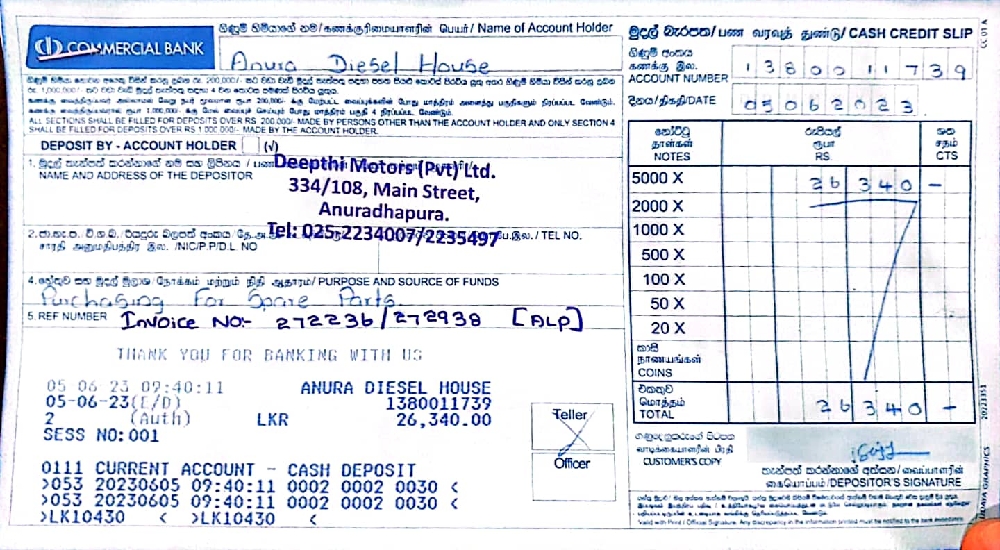 COMMERCIAL BANK
ගිණුම් හිමියාගේ නම/கணக்குரிமையாளரின் பெயர்/ Name of Account Holder
Anura Diesel House
මුදල් බැරපත/பண வரவுத் துண்டு/CASH CREDIT SLIP
CC 01 A
ගිණුම් අංකය
கணக்கு இல.
ACCOUNT NUMBER 1380011739
දිනය/திகதி/DATE 05062023
ALL SECTIONS SHALL BE FILLED FOR DEPOSITS OVER RS 200,000/- MADE BY PERSONS OTHER THAN THE ACCOUNT HOLDER AND ONLY SECTION 4
SHALL BE FILLED FOR DEPOSITS OVER RS 1,000,000/- MADE BY THE ACCOUNT HOLDER.
DEPOSIT BY - ACCOUNT HOLDER (√)
NAME AND ADDRESS OF THE DEPOSITOR
Deepthi Motors (Pvt) Ltd.
334/108, Main Street,
Anuradhapura.
Tel: 025-2234007/2235497
/ TEL NO.
சாரதி அனுமதிபத்திர இல. /NIC/P.P/D.L NO
4. හේතුව සහ මුදල් මූලාශ්‍ර/நோக்கம் மற்றும் நிதி ஆதாரம்/ PURPOSE AND SOURCE OF FUNDS
Purchasing For Spare Parts
5. REF NUMBER Invoice No:- 272236/272938 [ALP]
THANK YOU FOR BANKING WITH US
05 06 23 09:40:11 ANURA DIESEL HOUSE
05-06-23(E/D) 1380011739
2 (Auth) LKR 26,340.00
SESS NO:001
0111 CURRENT ACCOUNT - CASH DEPOSIT
>053 20230605 09:40:11 0002 0002 0030 <
>053 20230605 09:40:11 0002 0002 0030 <
>LK10430 < >LK10430 <
Teller
Officer
නෝට්ටු
தாள்கள்
NOTES
රුපියල්
ரூபா
RS.
ශත
சதம்
CTS
5000 X 26 340 -
2000 X
1000 X
500 X
100 X
50 X
20 X
කාසි
நாணயங்கள்
COINS
එකතුව
மொத்தம்
TOTAL 26 340 -
ගනුදෙනුකරුගේ පිටපත
வாடிக்கையாளரின் பிரதி
CUSTOMER'S COPY
තැන්පත් කරන්නාගේ අත්සන/வைப்பாளரின்
கையொப்பம்/DEPOSITOR'S SIGNATURE
Valid with Print / Official Signature. Any discrepancy in the information printed must be notified to the bank immediately.